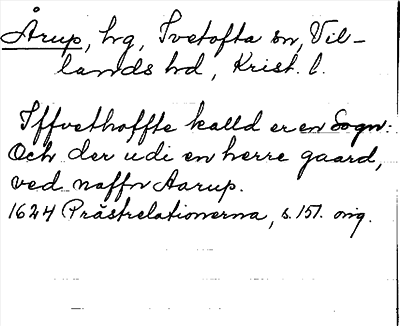 Årup, hg, Ivetofta sn, Vil-
lands hd, Krist. l.
Iffvethoffte kalld er en Sogn:
Och der udi en herre gaard,
ved naffn Aarup.
1624 Prästrelationerna, s. 151. orig.